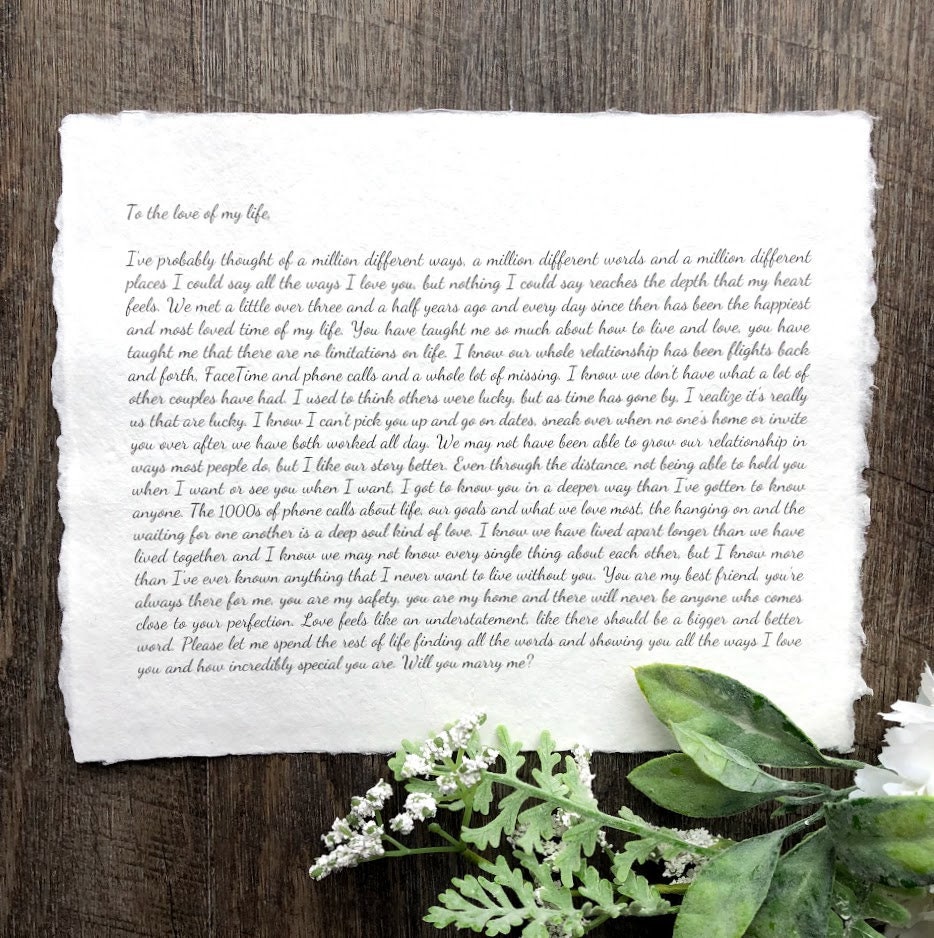 To the love of my life,
I've probably thought of a million different ways, a million different words and a million different
places I could say all the ways I love you, but nothing I could say reaches the depth that my heart
feels. We met a little over three and a half years ago and every day since then has been the happiest
and most loved time of my life. You have taught me so much about how to live and love, you have
taught me that there are no limitations on life. I know our whole relationship has been flights back
and forth, FaceTime and phone calls and a whole lot of missing. I know we don't have what a lot of
other couples have had. I used to think others were lucky, but as time has gone by, I realize it's really
us that are lucky. I know I can't pick you up and go on dates, sneak over when no one's home or invite
you over after we have both worked all day. We may not have been able to grow our relationship in
ways most people do, but I like our story better. Even through the distance, not being able to hold you
when I want or see you when I want, I got to know you in a deeper way than I've gotten to know
anyone. The 1000s of phone calls about life, our goals and what we love most, the hanging on and the
waiting for one another is a deep soul kind of love. I know we have lived apart longer than we have
lived together and I know we may not know every single thing about each other, but I know more
than I've ever known anything that I never want to live without you. You are my best friend, you're
always there for me, you are my safety, you are my home and there will never be anyone who comes
close to your perfection. Love feels like an understatement, like there should be a bigger and better
word. Please let me spend the rest of life finding all the words and showing you all the ways I love
you and how incredibly special you are. Will you marry me?